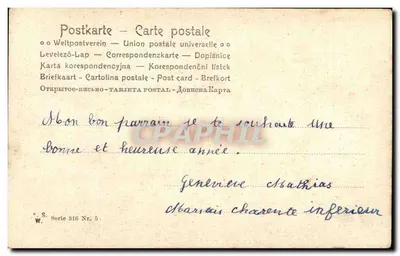 Postkarte – Carte postale
Weltpostverein – Union postale universelle
Levelező-Lap – Correspondenzkarte – Dopisnice
Karta korespondencyjna – Korespondenční lístek
Briefkaart – Cartolina postale – Post card – Brefkort
Открытое-письмо – TARJETA POSTAL – Дописна Карта
Mon bon parrain je te souhaite une
bonne et heureuse année.
Geneviève Mathias
Marais charente inferieur
CPARAMA
S.
W. Serie 316 Nr. 5